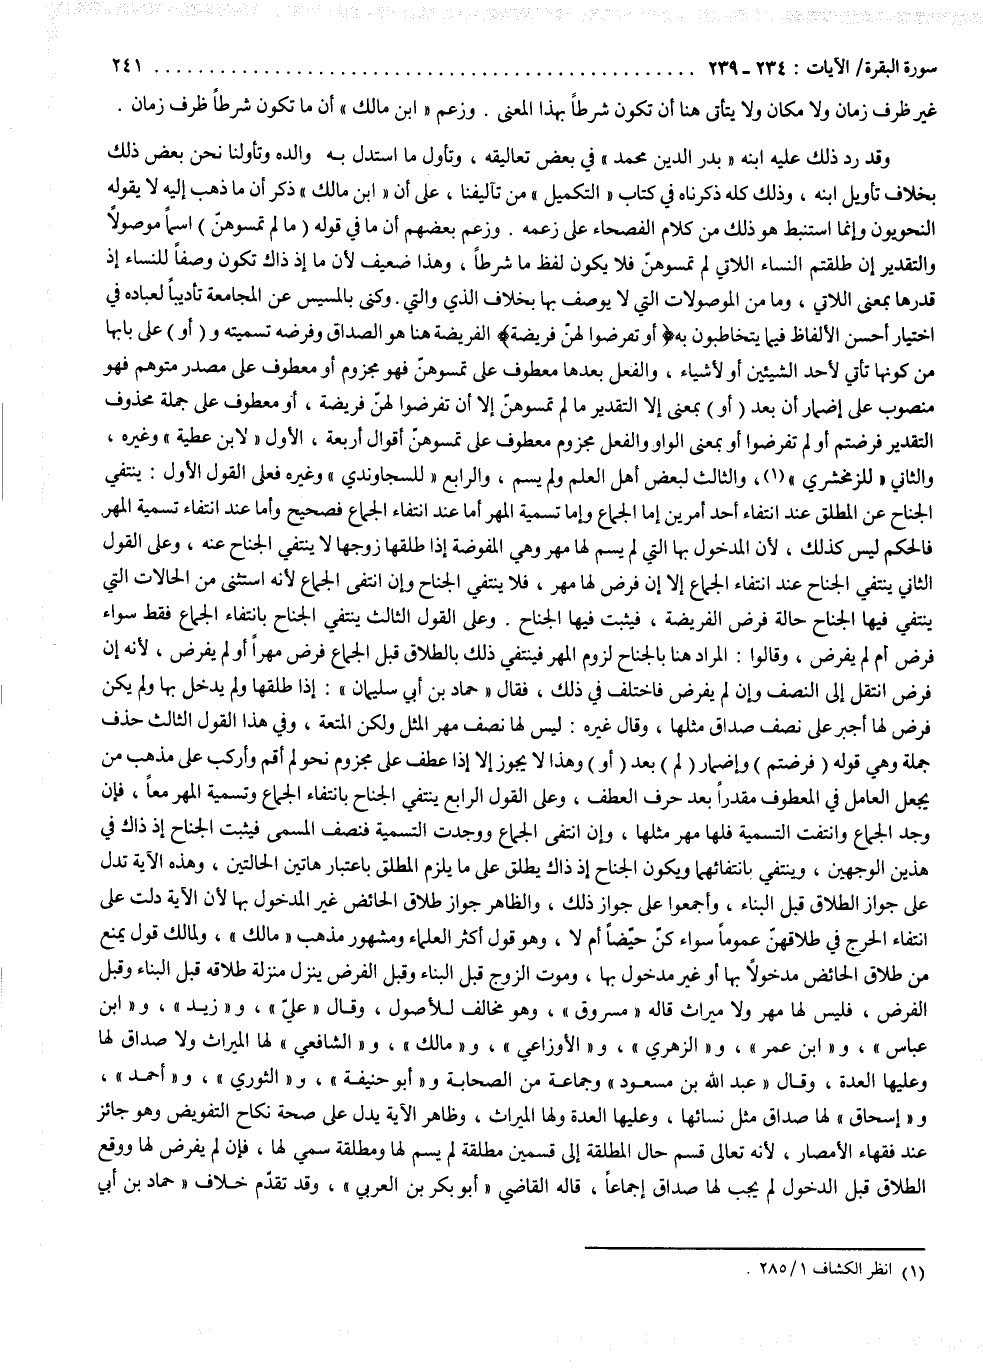 سورة البقرة/ الآيات : ٢٣٤ - ٢٣٩ ................................................ ٢٤١
غير ظرف زمان ولا مكان ولا يتأتى هنا أن تكون شرطاً بهذا المعنى . وزعم « ابن مالك » أن ما تكون شرطاً ظرف زمان .
وقد رد ذلك عليه ابنه « بدر الدين محمد » في بعض تعاليقه ، وتأول ما استدل به والده وتأولنا نحن بعض ذلك
بخلاف تأويل ابنه ، وذلك كله ذكرناه في كتاب « التكميل » من تآليفنا ، على أن « ابن مالك » ذكر أن ما ذهب إليه لا يقوله
النحويون وإنما استنبط هو ذلك من كلام الفصحاء على زعمه . وزعم بعضهم أن ما في قوله ( ما لم تمسوهنّ ) اسماً موصولاً
والتقدير إن طلقتم النساء اللاتي لم تمسوهنّ فلا يكون لفظ ما شرطاً ، وهذا ضعيف لأن ما إذ ذاك تكون وصفاً للنساء إذ
قدرها بمعنى اللاتي ، وما من الموصولات التي لا يوصف بها بخلاف الذي والتي . وكنى بالمسيس عن المجامعة تأديباً لعباده في
اختيار أحسن الألفاظ فيما يتخاطبون به ﴿ أو تفرضوا لهنّ فريضة ﴾ الفريضة هنا هو الصداق وفرضه تسميته و ( أو ) على بابها
من كونها تأتي لأحد الشيئين أو لأشياء ، والفعل بعدها معطوف على تمسوهنّ فهو مجزوم أو معطوف على مصدر متوهم فهو
منصوب على إضمار أن بعد ( أو ) بمعنى إلا التقدير ما لم تمسوهنّ إلا أن تفرضوا لهنّ فريضة ، أو معطوف على جملة محذوف
التقدير فرضتم أو لم تفرضوا أو بمعنى الواو والفعل مجزوم معطوف على تمسوهنّ أقوال أربعة ، الأول « لابن عطية » وغيره ،
والثاني « للزمخشري »(١)، والثالث لبعض أهل العلم ولم يسم ، والرابع « للسجاوندي » وغيره فعلى القول الأول : ينتفي
الجناح عن المطلق عند انتفاء أحد أمرين إما الجماع وإما تسمية المهر أما عند انتفاء الجماع فصحيح وأما عند انتفاء تسمية المهر
فالحكم ليس كذلك ، لأن المدخول بها التي لم يسم لها مهر وهي المفوضة إذا طلقها زوجها لا ينتفي الجناح عنه ، وعلى القول
الثاني ينتفي الجناح عند انتفاء الجماع إلا إن فرض لها مهر ، فلا ينتفي الجناح وإن انتفى الجماع لأنه استثنى من الحالات التي
ينتفي فيها الجناح حالة فرض الفريضة ، فيثبت فيها الجناح . وعلى القول الثالث ينتفي الجناح بانتفاء الجماع فقط سواء
فرض أم لم يفرض ، وقالوا : المراد هنا بالجناح لزوم المهر فينتفي ذلك بالطلاق قبل الجماع فرض مهراً أو لم يفرض ، لأنه إن
فرض انتقل إلى النصف وإن لم يفرض فاختلف في ذلك ، فقال « حماد بن أبي سليمان » : إذا طلقها ولم يدخل بها ولم يكن
فرض لها أجبر على نصف صداق مثلها ، وقال غيره : ليس لها نصف مهر المثل ولكن المتعة ، وفي هذا القول الثالث حذف
جملة وهي قوله ( فرضتم ) وإضمار ( لم ) بعد ( أو ) وهذا لا يجوز إلا إذا عطف على مجزوم نحو لم أقم وأركب على مذهب من
يجعل العامل في المعطوف مقدراً بعد حرف العطف ، وعلى القول الرابع ينتفي الجناح بانتفاء الجماع وتسمية المهر معاً ، فإن
وجد الجماع وانتفت التسمية فلها مهر مثلها ، وإن انتفى الجماع ووجدت التسمية فنصف المسمى فيثبت الجناح إذ ذاك في
هذين الوجهين ، وينتفي بانتفائهما ويكون الجناح إذ ذاك يطلق على ما يلزم المطلق باعتبار هاتين الحالتين ، وهذه الآية تدل
على جواز الطلاق قبل البناء ، وأجمعوا على جواز ذلك ، والظاهر جواز طلاق الحائض غير المدخول بها لأن الآية دلت على
انتفاء الحرج في طلاقهنّ عموماً سواء كنّ حيّضاً أم لا ، وهو قول أكثر العلماء ومشهور مذهب « مالك » ، ولمالك قول يمنع
من طلاق الحائض مدخولاً بها أو غير مدخول بها ، وموت الزوج قبل البناء وقبل الفرض ينزل منزلة طلاقه قبل البناء وقبل
الفرض ، فليس لها مهر ولا ميراث قاله « مسروق » ، وهو مخالف للأصول ، وقال « عليّ » ، و « زيد » ، و « ابن
عباس » ، و « ابن عمر » ، و « الزهري » ، و « الأوزاعي » ، و « مالك » ، و « الشافعي » لها الميراث ولا صداق لها
وعليها العدة ، وقال « عبد الله بن مسعود » وجماعة من الصحابة و « أبو حنيفة » ، و « الثوري » ، و « أحمد » ،
و « إسحاق » لها صداق مثل نسائها ، وعليها العدة ولها الميراث ، وظاهر الآية يدل على صحة نكاح التفويض وهو جائز
عند فقهاء الأمصار ، لأنه تعالى قسم حال المطلقة إلى قسمين مطلقة لم يسم لها ومطلقة سمي لها ، فإن لم يفرض لها ووقع
الطلاق قبل الدخول لم يجب لها صداق إجماعاً ، قاله القاضي « أبو بكر بن العربي » ، وقد تقدّم خلاف « حماد بن أبي
(١) انظر الكشاف ٢٨٥/١ .